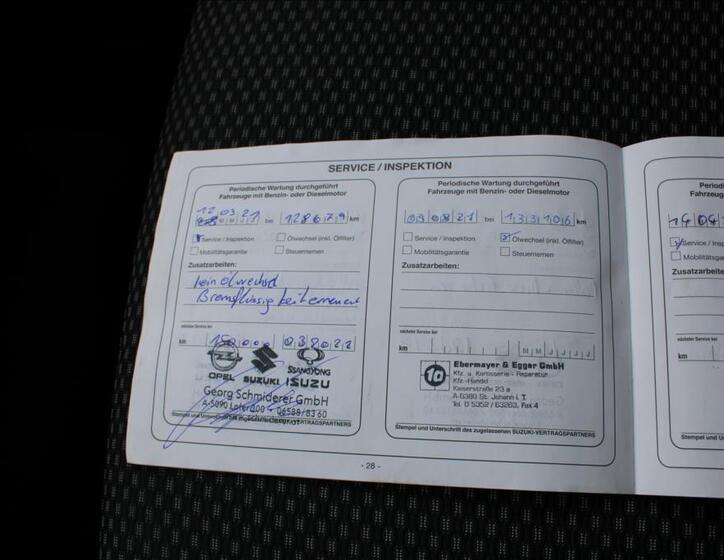 SERVICE / INSPEKTION
Periodische Wartung durchgeführt
Fahrzeuge mit Benzin- oder Dieselmotor
12 03.21 bei 128679 km
Service / Inspektion
Ölwechsel (inkl. Ölfilter)
Mobilitätsgarantie
Steuerriemen
Zusatzarbeiten:
kein Ölwechsel
Bremsflüssigkeit erneuert
nächster Service bei
km
OPEL SUZUKI SSANGYONG ISUZU
Georg Schmiderer GmbH
A-5090 Lofer 200 06588/83 60
Stempel und
VERTRAGSPARTNERS
Periodische Wartung durchgeführt
Fahrzeuge mit Benzin- oder Dieselmotor
090821 bei 133106 km
Service / Inspektion
Ölwechsel (inkl. Ölfilter)
Mobilitätsgarantie
Steuerriemen
Zusatzarbeiten:
nächster Service bei
km M M J J J J
Ebermayer & Egger GmbH
Kfz. u. Karosserie - Reparatur
Kfz.-Handel
Kaiserstraße 23 a
A-6380 St. Johann i. T.
Tel. 0 5352 / 63263, Fax 4
Stempel und Unterschrift des zugelassenen SUZUKI-VERTRAGSPARTNERS
- 28 -
Periodische
Fahrzeuge m
Service / Ins
Mobilitätsgara
Zusatzarbeiten
nächster Service bei
km
Stempel und Unters